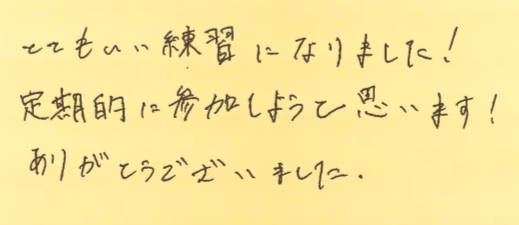 とてもいい練習になりました!
定期的に参加しようと思います!
ありがとうございました.